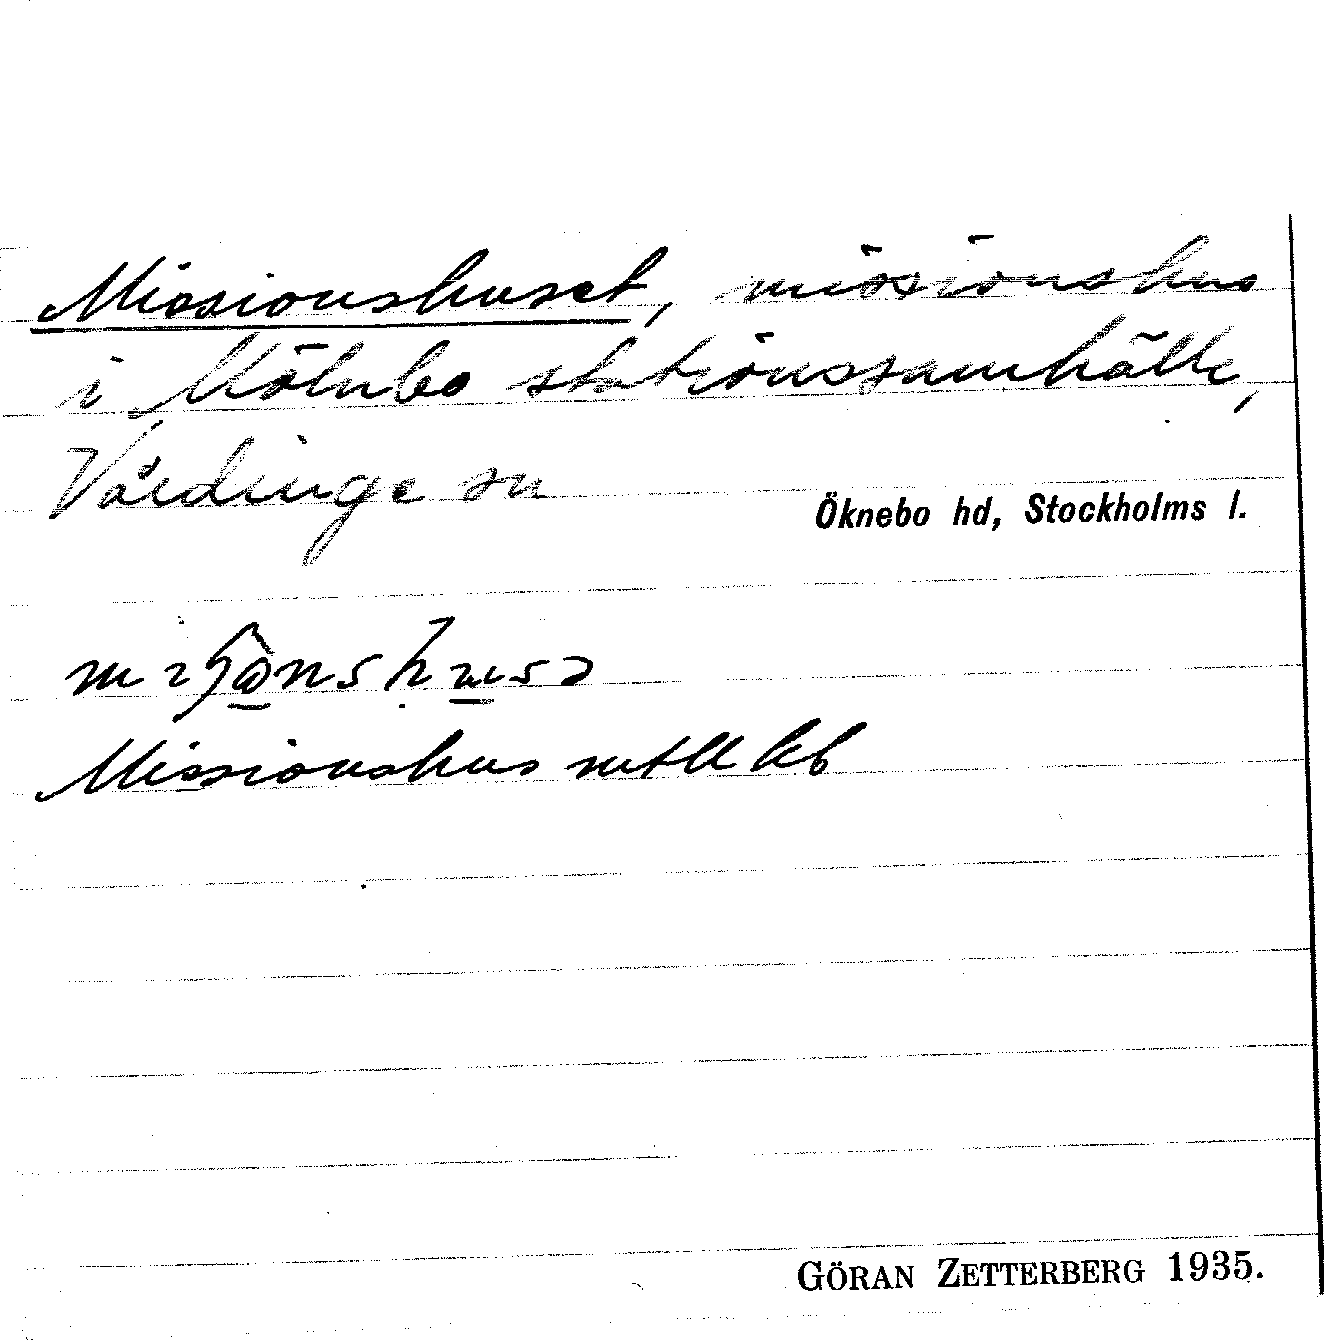 Missionshuset, missionshus
i Mölnbo stationssamhälle,
Vårdinge sn
Öknebo hd, Stockholms l.
Missionshus
GÖRAN ZETTERBERG 1935.